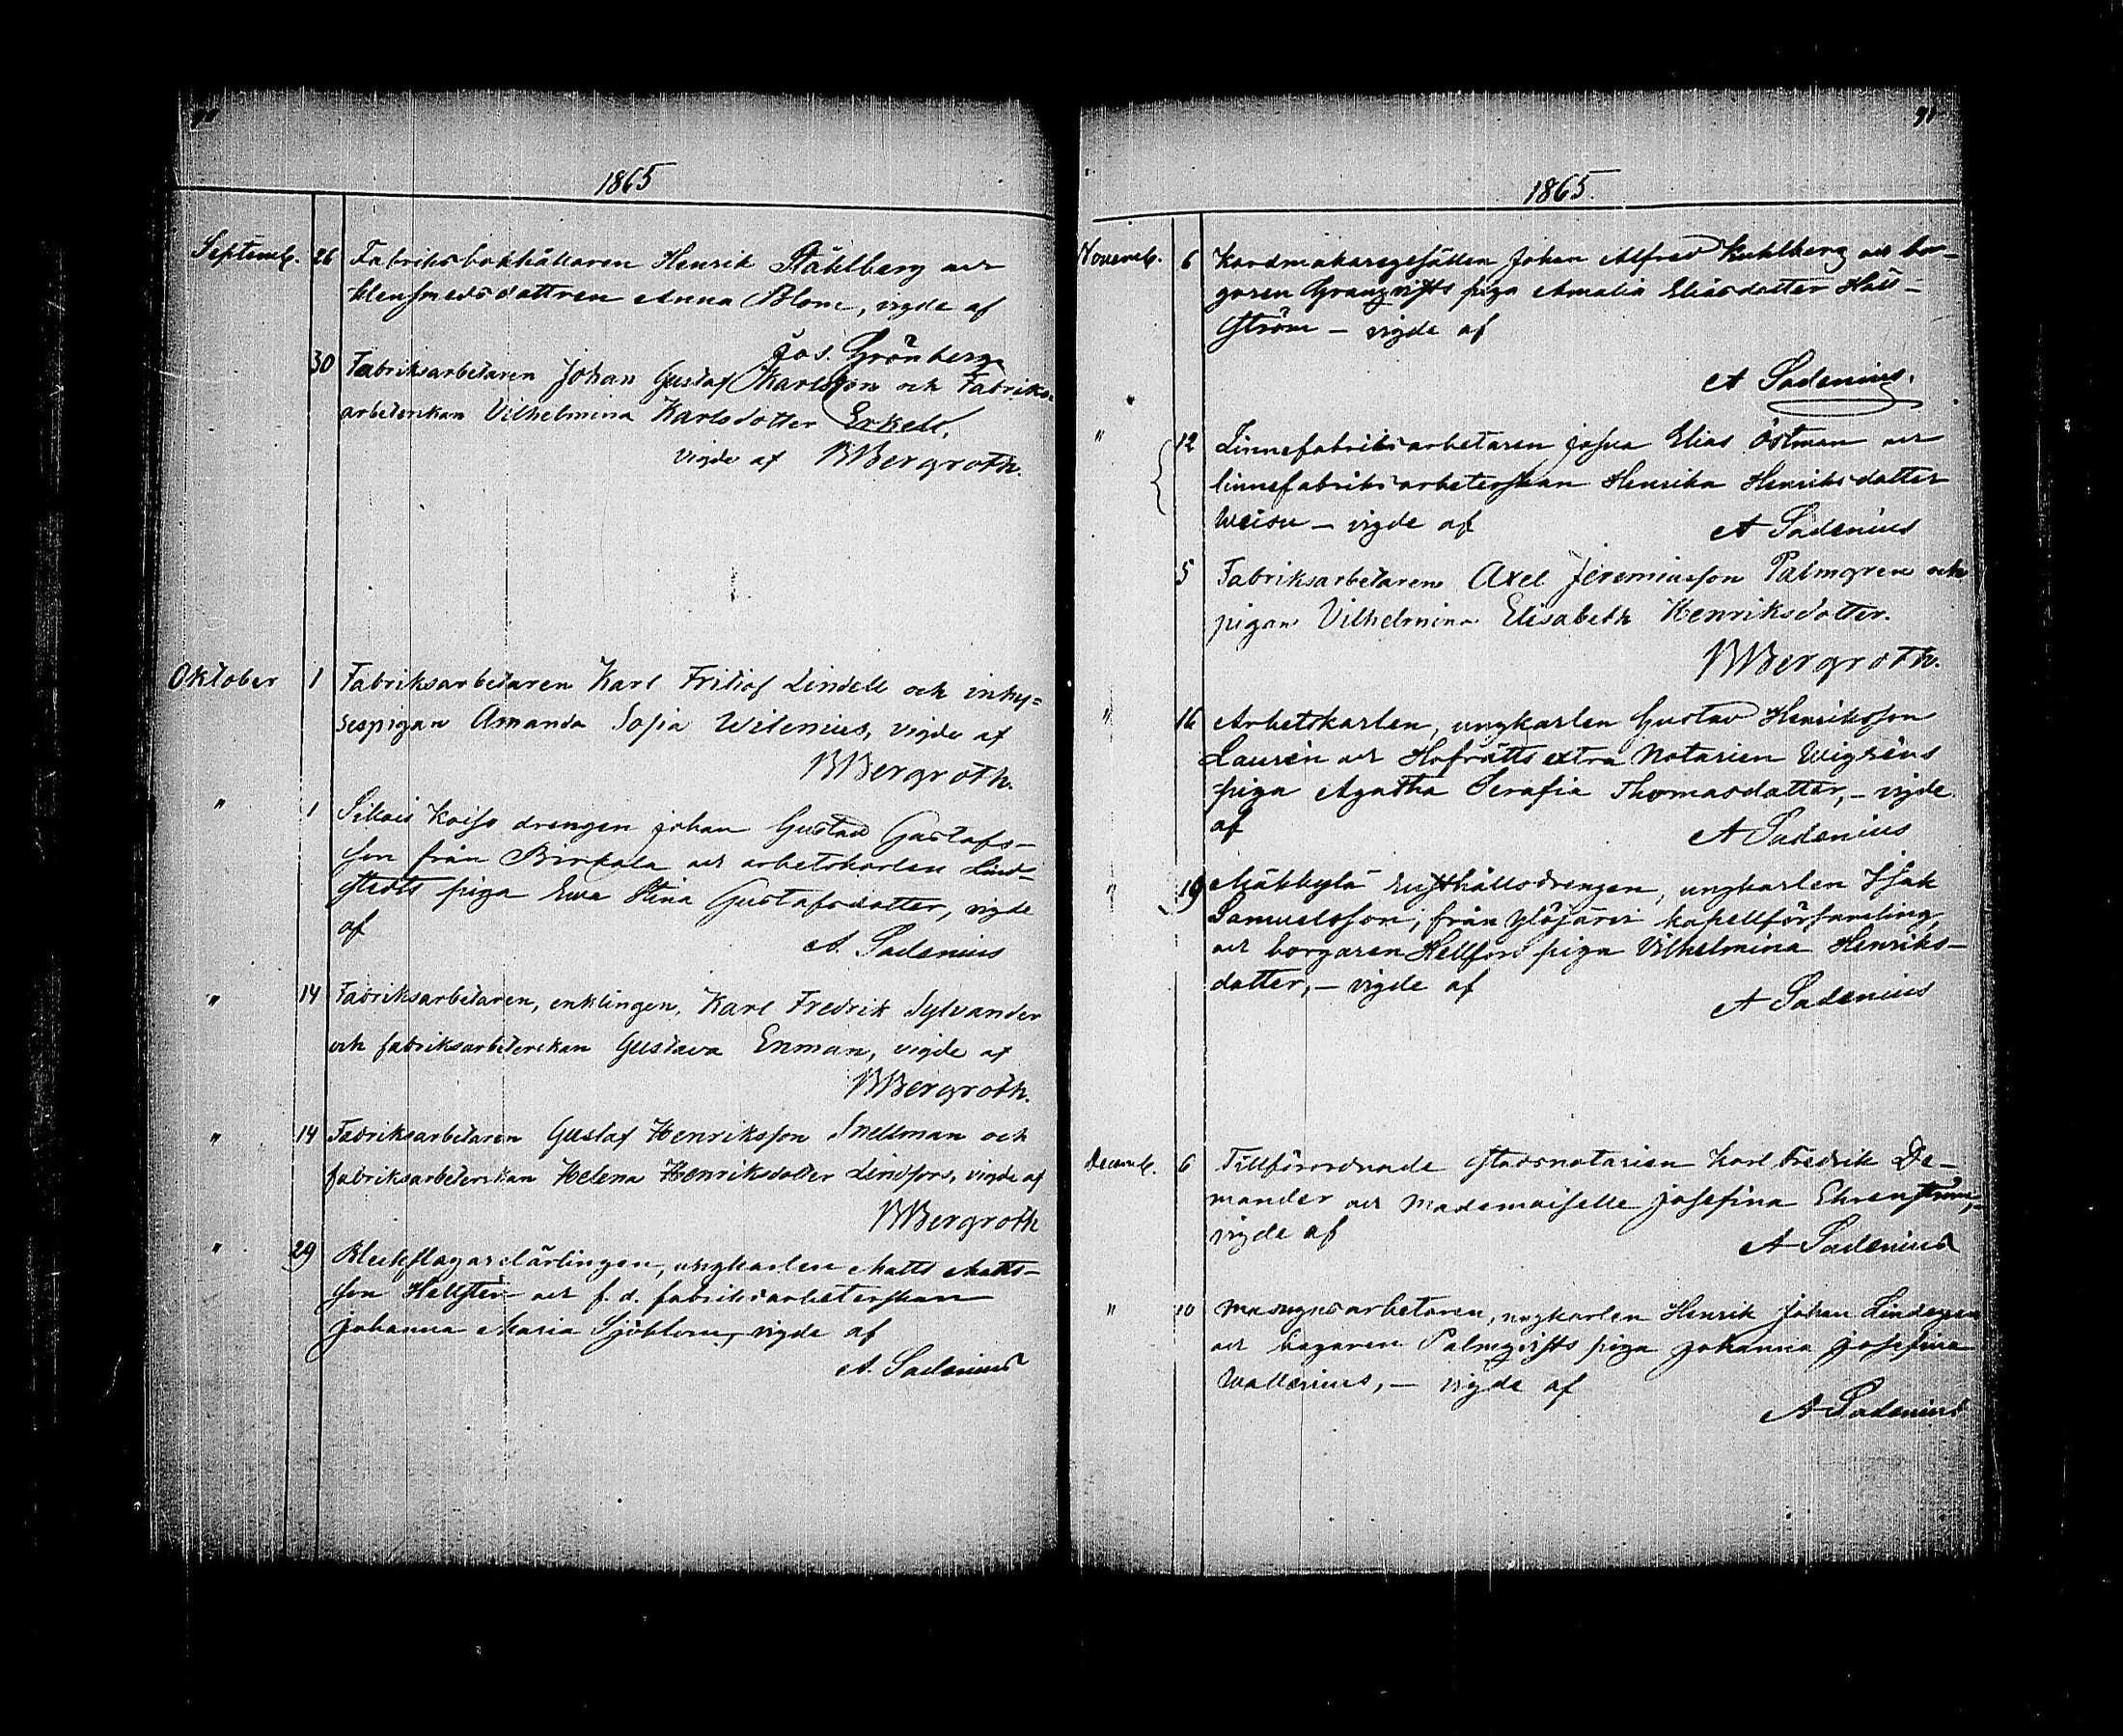 1865
Septemb. 26 Fabriksbokhållaren Henrik Ståhlberg och
klensmedsdottren Anna Blom, vigde af
Jos. Grönberg
30 Fabriksarbetaren Johan Gustaf Karlsson och Fabriks-
arbeterskan Vilhelmina Karlsdotter Erkell,
vigde af BBergroth.
Oktober 1 Fabriksarbetaren Karl Fritiof Lindell och inhy=
sespigan Amanda Sofia Wilenius, vigde af
BBergroth.
" 1 drengen Johan Gustav Gustafs-
son från Birkala och arbetskarlen Lind-
stedts piga Ewa Stina Gustafsdotter, vigde
af
A. Sadenius
" 14 Fabriksarbetaren, enklingen, Karl Fredrik Sylvander
och fabriksarbeterskan Gustava Enman, vigde af
BBergroth.
" 14 Fabriksarbetaren Gustaf Henriksson Snellman och
fabriksarbeterskan Helena Henriksdotter Lindfors, vigde af
BBergroth
" 29 Bleckslagarelärlingen, ungkarlen Matts Matts-
son Hellstén och f. d. fabriksarbeterskan
Johanna Maria Sjöblom, vigde af
A. Sadenius
1865.
Novemb. 6 Kardmakaregesällen Johan Alfred Kuhlberg och bor-
garen Granqvists piga Amalia Eliasdotter Hall-
ström – vigde af
A Sadenius.
" 12 Linnefabriksarbetaren Josua Elias Östman och
linnefabriksarbeterskan Henrika Henriksdotter
– vigde af A Sadenius
5 Fabriksarbetaren Axel Jeremiasson Palmgren och
pigan Vilhelmina Elisabeth Henriksdotter.
BBergroth.
" 16 Arbetskarlen, ungkarlen Gustav Henriksson
Laurén och Hofrätts extra Notarien Wigréns
piga Agatha Serafia Thomasdotter, – vigde
af A Sadenius
" 19 Mäkkylä Rusthållsdrengen, ungkarlen Isak
Samuelsson, från Ylöjärvi kapellförsamling,
och borgaren Hellfors piga Vilhelmina Henriks-
dotter, – vigde af
A Sadenius
Decemb. 6 Tillförordnade Stadsnotarien Karl Fredrik De-
mander och Mademoiselle Josefina Ehrenström,
vigde af
A Sadenius
" 10 Masugnsarbetaren, ungkarlen Henrik Johan Lindegren
och bagaren Palmqvists piga Johanna Josefina
Wallenius, – vigde af
A Sadenius